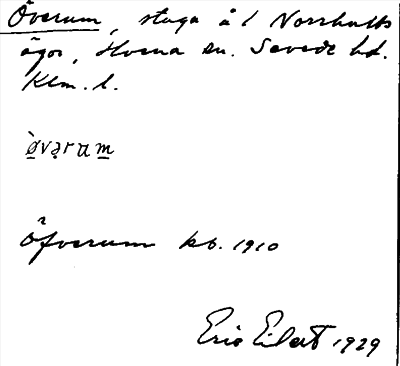 Överum, stuga å 1 Norrhults
ägor, Hvena sn. Sevede hd.
Klm. l.
ø̀vərum
Öfverum kb. 1910
Eric Eilert 1929